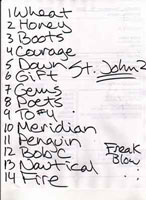 1 Wheat
2 Honey
3 Boots
4 Courage
5 Down St. Johnz
6 Gift
7 Gems
8 Poets
9 To #4
10 Meridian
11 Penguin
12 Bob C Freak
13 Nautical Blow
14 Fire